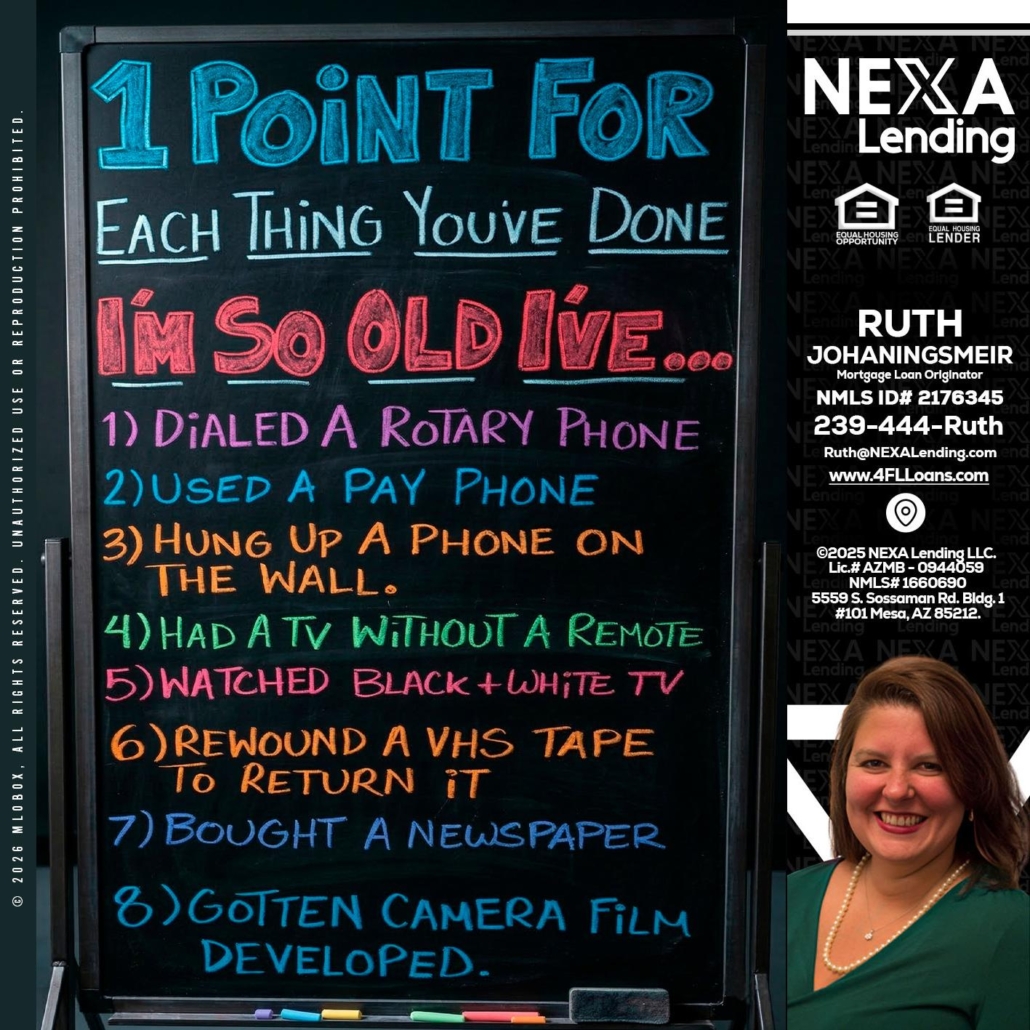 1 POINT FOR
EACH THING YOU'VE DONE
I'M SO OLD I'VE...
1) DIALED A ROTARY PHONE
2) USED A PAY PHONE
3) HUNG UP A PHONE ON
THE WALL.
4) HAD A TV WITHOUT A REMOTE
5) WATCHED BLACK + WHITE TV
6) REWOUND A VHS TAPE
TO RETURN IT
7) BOUGHT A NEWSPAPER
8) GOTTEN CAMERA FILM
DEVELOPED.
© 2026 MLOBOX, ALL RIGHTS RESERVED. UNAUTHORIZED USE OR REPRODUCTION PROHIBITED.
NEXA
Lending
EQUAL HOUSING
OPPORTUNITY
EQUAL HOUSING
LENDER
RUTH
JOHANINGSMEIR
Mortgage Loan Originator
NMLS ID# 2176345
239-444-Ruth
Ruth@NEXALending.com
www.4FLLoans.com
©2025 NEXA Lending LLC.
Lic.# AZMB - 0944059
NMLS# 1660690
5559 S. Sossaman Rd. Bldg. 1
#101 Mesa, AZ 85212.